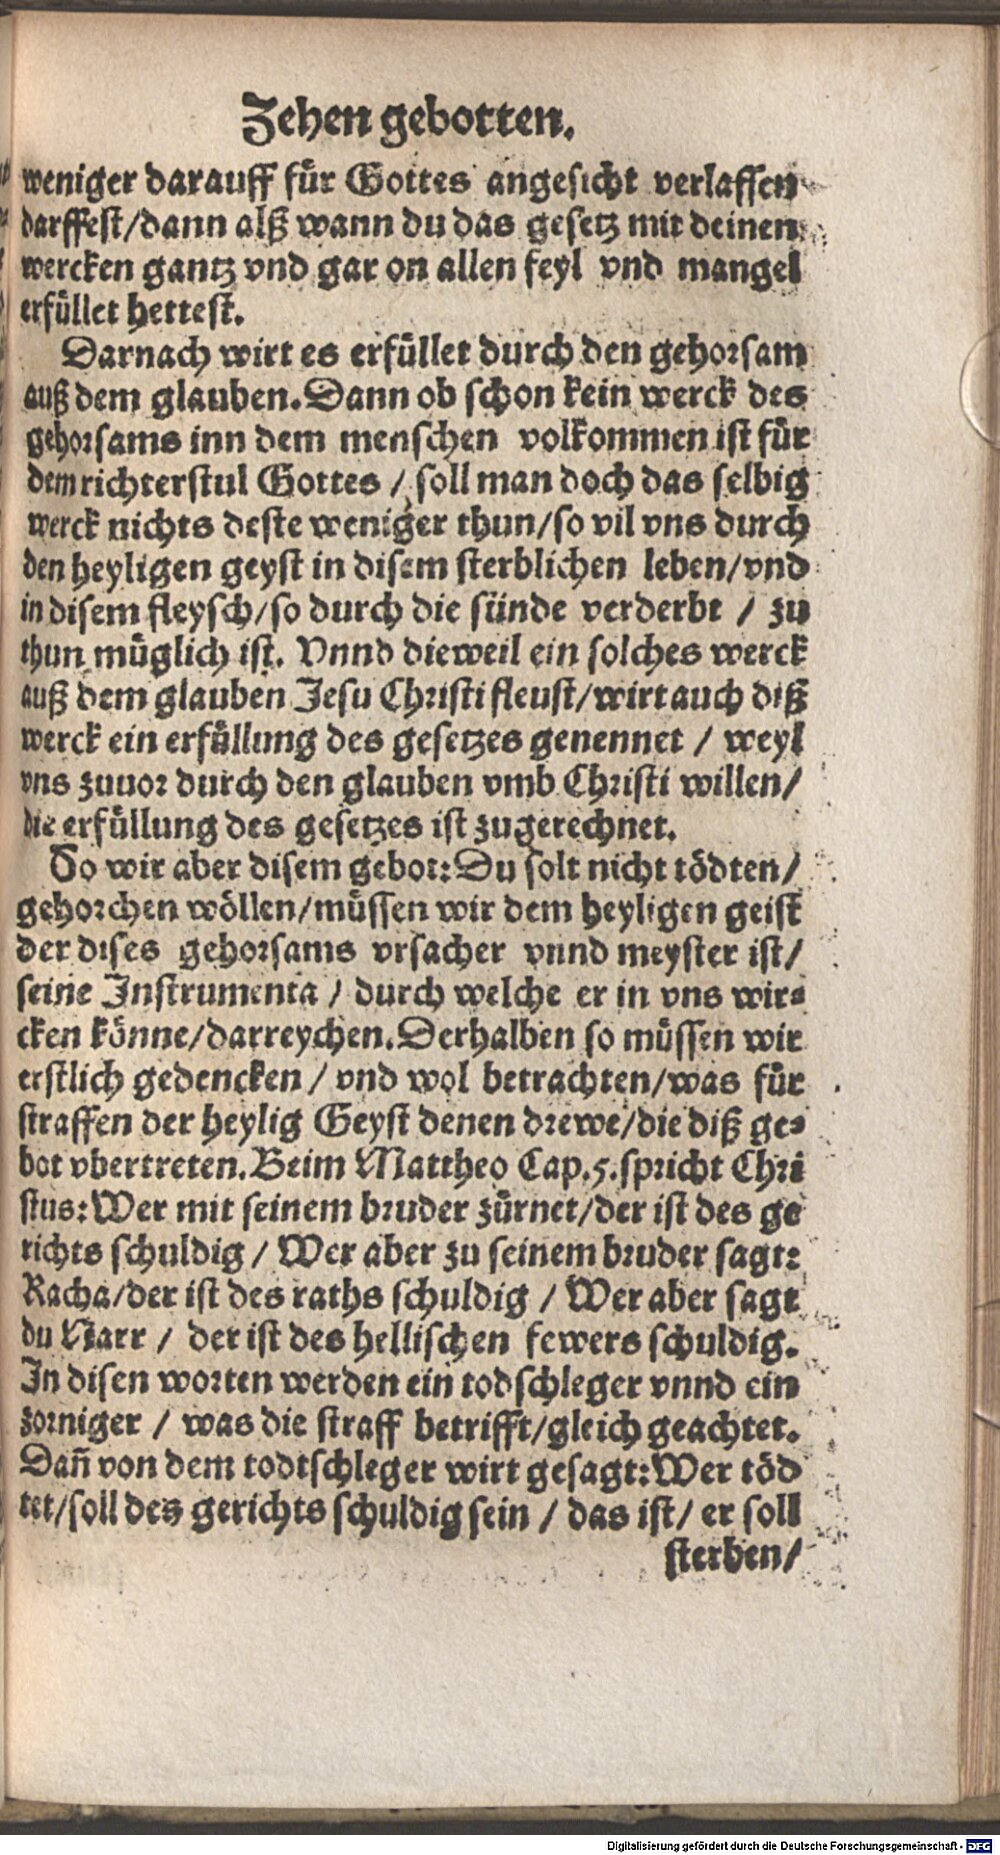 Zehen gebotten.
weniger darauff für Gottes angesicht verlassen
darffest/dann alß wann du das gesetz mit deinen
wercken gantz vnd gar on allen feyl vnd mangel
erfüllet hettest.
Darnach wirt es erfüllet durch den gehorsam
auß dem glauben. Dann ob schon kein werck des
gehorsams inn dem menschen volkommen ist für
dem richterstul Gottes / soll man doch das selbig
werck nichts deste weniger thun/so vil vns durch
den heyligen geyst in disem sterblichen leben/vnd
in disem fleysch/so durch die sünde verderbt / zu
thun müglich ist. Vnnd dieweil ein solches werck
auß dem glauben Jesu Christi fleust/wirt auch diß
werck ein erfüllung des gesetzes genennet / weyl
vns zuuor durch den glauben vmb Christi willen/
die erfüllung des gesetzes ist zugerechnet.
So wir aber disem gebot: Du solt nicht tödten/
gehorchen wöllen/müssen wir dem heyligen geist
der dises gehorsams vrsacher vnnd meyster ist/
seine Instrumenta / durch welche er in vns wir-
cken könne/darreychen. Derhalben so müssen wir
erstlich gedencken / vnd wol betrachten/was für
straffen der heylig Geyst denen drewe/die diß ge-
bot vbertreten. Beim Mattheo Cap.5. spricht Chri
stus: Wer mit seinem bruder zürnet/der ist des ge
richts schuldig / Wer aber zu seinem bruder sagt:
Racha/der ist des raths schuldig / Wer aber sagt
du Narr / der ist des hellischen fewers schuldig.
In disen worten werden ein todschleger vnnd ein
zorniger / was die straff betrifft/gleich geachtet.
Dañ von dem todtschleger wirt gesagt: Wer töd
tet/soll des gerichts schuldig sein / das ist/ er soll
sterben/
Digitalisierung gefördert durch die Deutsche Forschungsgemeinschaft - DFG